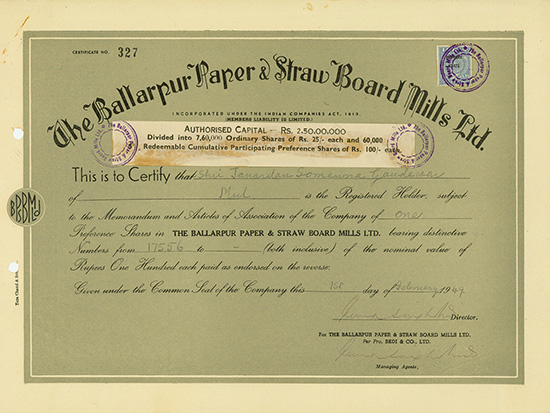 CERTIFICATE NO. 327
The Ballarpur Paper & Straw Board Mills Ltd.
INCORPORATED UNDER THE INDIAN COMPANIES ACT, 1913.
(MEMBERS LIABILITY IS LIMITED)
AUTHORISED CAPITAL — RS. 2,50,00,000
Divided into 7,60,000 Ordinary Shares of Rs. 25/- each and 60,000
Redeemable Cumulative Participating Preference Shares of Rs. 100/- each
This is to Certify that Shri Janardan
of Mul is the Registered Holder, subject
to the Memorandum and Articles of Association of the Company of one
Preference Shares in THE BALLARPUR PAPER & STRAW BOARD MILLS LTD. bearing distinctive
Numbers from 17556 to - (both inclusive) of the nominal value of
Rupees One Hundred each paid as endorsed on the reverse.
Given under the Common Seal of the Company this 1st day of February 1949
Director.
For THE BALLARPUR PAPER & STRAW BOARD MILLS LTD.
Per Pro. BEDI & CO., LTD.
Managing Agents.